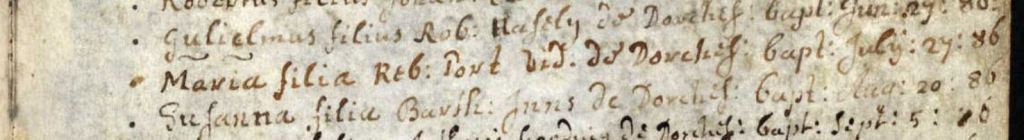 filius
Gulielmus filius Rob: Hasely de Dorches: bapt: Jun: 29: 86:
Maria filia Reb: Port vid. de Dorches: bapt: July: 27: 86
Susanna filia Barth: Inns de Dorches: bapt: Aug: 20: 86
de Dorches: bapt: Sept: 5: 86